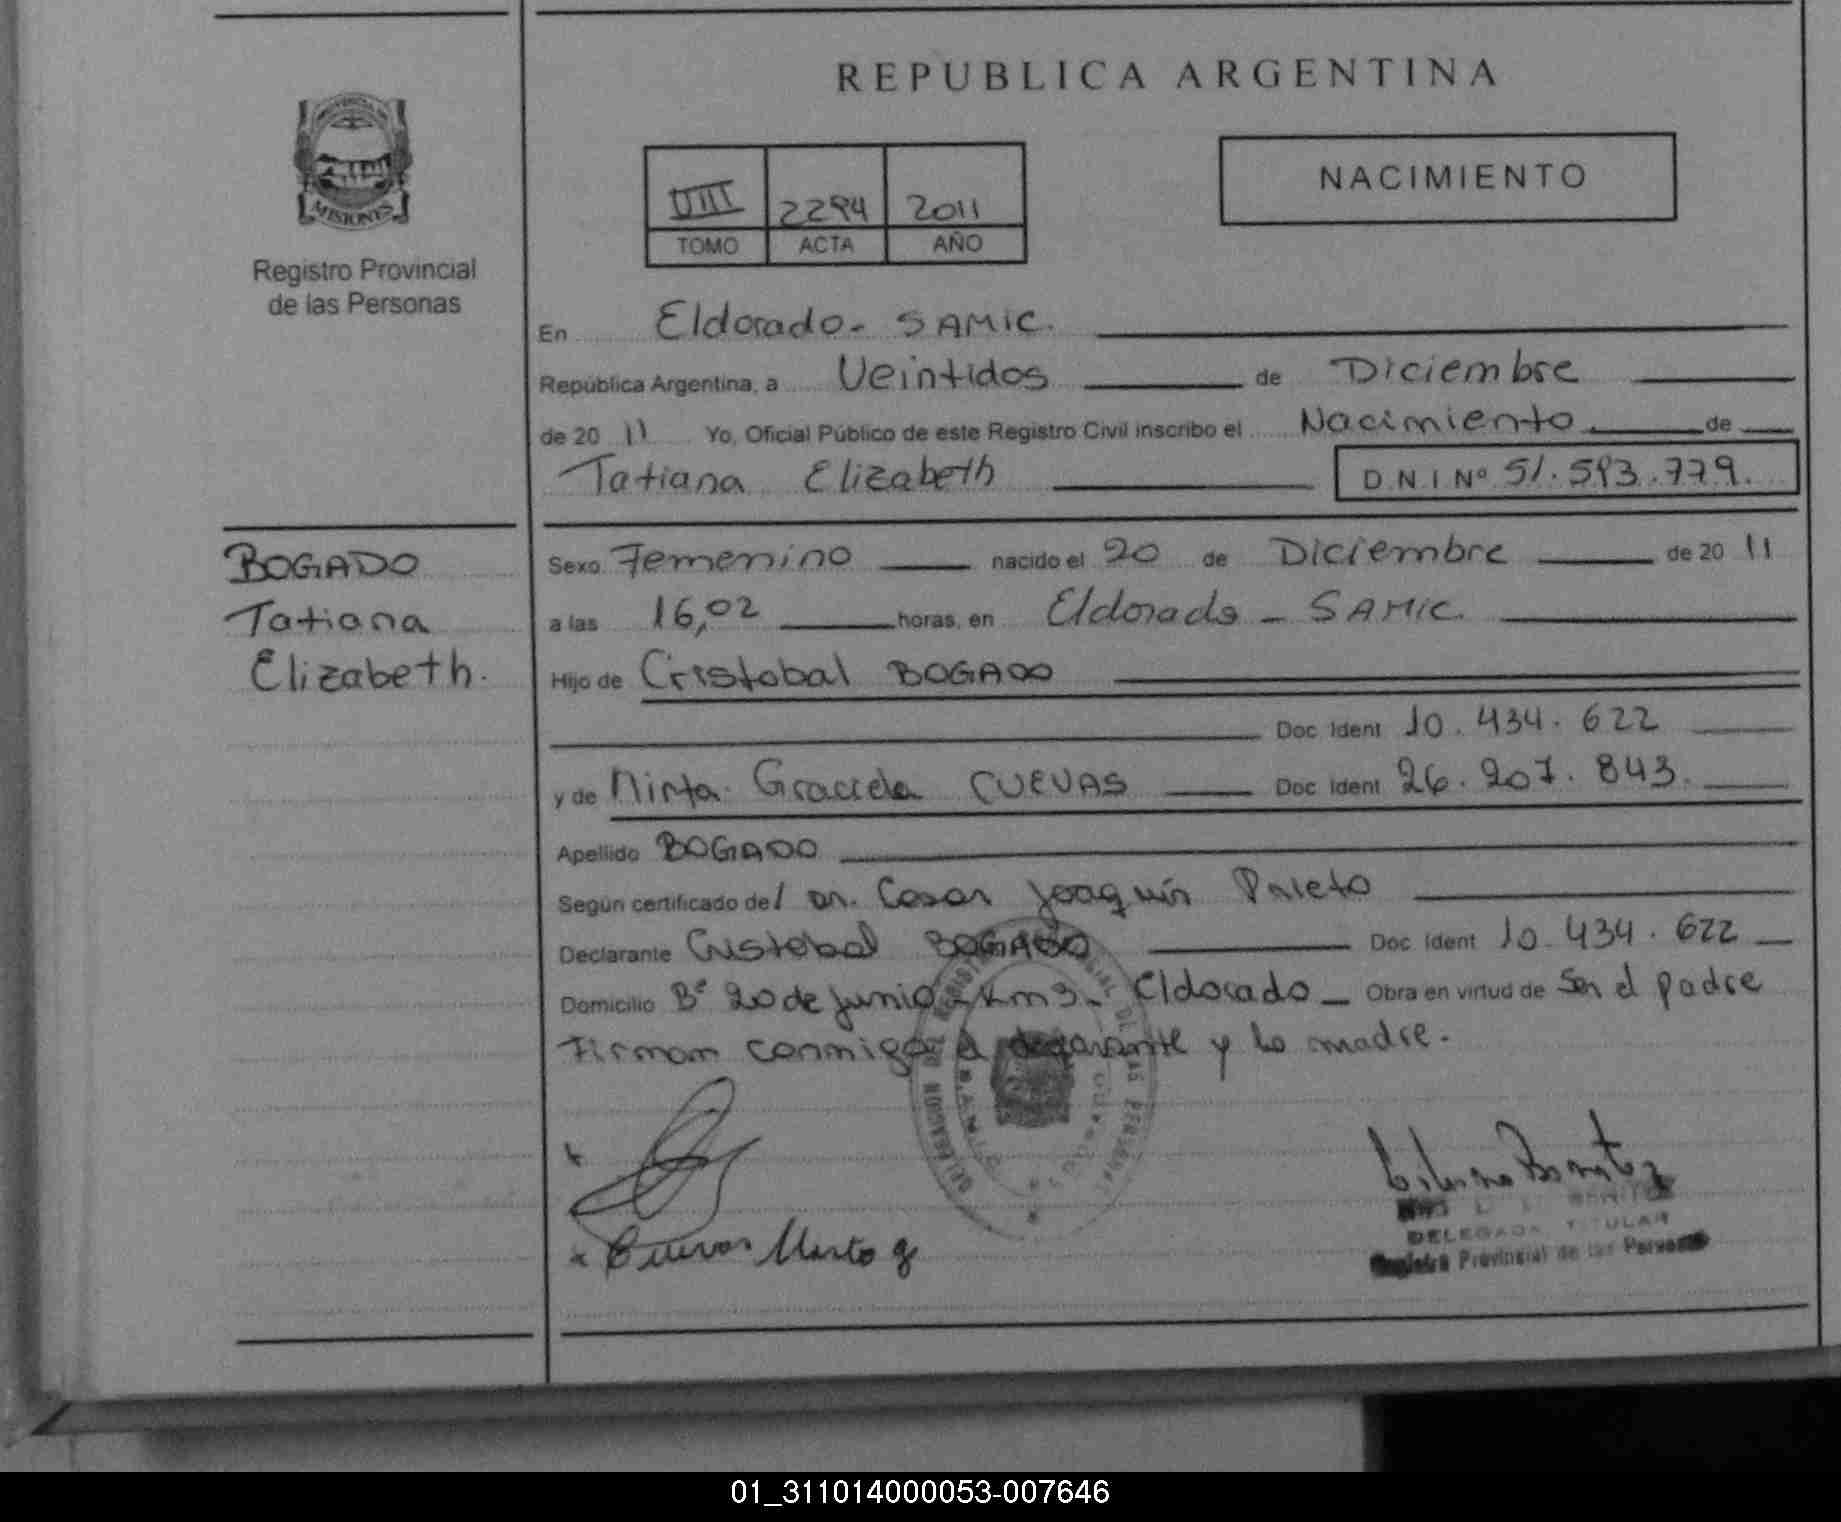 REPUBLICA ARGENTINA
PROVINCIA DE
MISIONES
Registro Provincial
de las Personas
VIII 2294 2011
TOMO ACTA AÑO
NACIMIENTO
En Eldorado - SAMIC.
República Argentina, a Veintidos de Diciembre
de 20 11 Yo, Oficial Público de este Registro Civil inscribo el Nacimiento de
Tatiana Elizabeth D.N.I Nº 51.593.779.
BOGADO
Tatiana
Elizabeth.
Sexo Femenino nacido el 20 de Diciembre de 20 11
a las 16,02 horas, en Eldorado - SAMIC.
Hijo de Cristobal BOGADO
Doc. Ident 10.434.622
y de Mirta Graciela CUEVAS Doc. Ident 26.207.843.
Apellido BOGADO
Según certificado del Dr. Cesar Joaquín Prieto
Declarante Cristobal BOGADO Doc. Ident 10.434.622
Domicilio Bº 20 de Junio - Km 3 - Eldorado - Obra en virtud de Ser el padre
Firman conmigo el declarante y la madre.
x
x Cuevas Mirta g
Benitez
DELEGADA TITULAR
Registro Provincial de las Personas
01_311014000053-007646